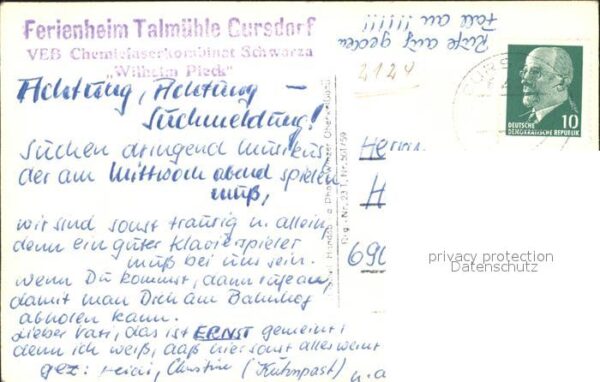 Ferienheim Talmühle Cursdorf
VEB Chemiefaserkombinat Schwarza
„Wilhelm Pieck“
Achtung, Achtung –
Suchmeldung!
Suchen dringend Musikus
der am Mittwoch abend spielen
muß,
wir sind sonst traurig u. allein,
denn ein guter Klavierspieler
muß bei uns sein.
Wenn Du kommst, dann rufe an,
damit man Dich am Bahnhof
abholen kann.
Lieber Vati, das ist ERNST gemeint!
denn ich weiß, daß hier sonst alles weint
gez: Heidi, Christine (Kühnpast) u. a
Rufe auf jeden
Fall an!!!!!!!
2124
DEUTSCHE
DEMOKRATISCHE REPUBLIK
10
Herrn
H
696
privacy protection
Datenschutz